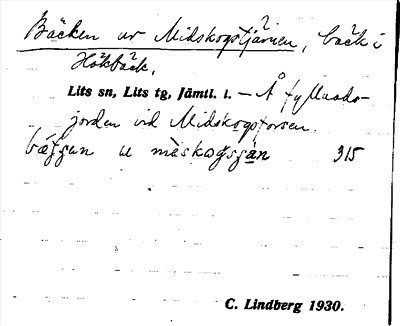 Bäcken ur Midskogstjärnen, bäck i
Hökbäck.
Lits sn, Lits tg, Jämtl. l. – Å fyllnads-
jorden vid Midskogsforsen.
u måskogsjän 315
C. Lindberg 1930.